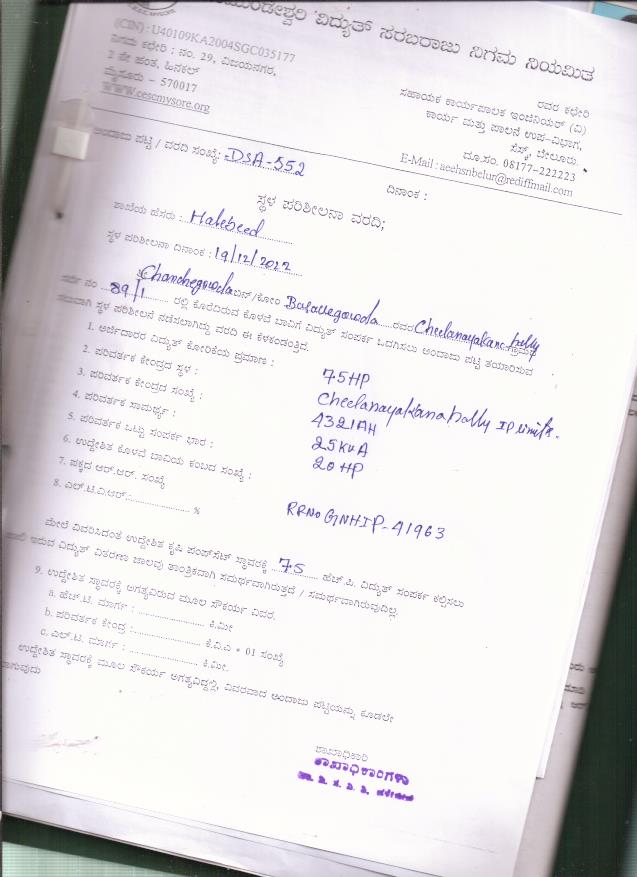 ಮುಂಡೇಶ್ವರಿ ವಿದ್ಯುತ್ ಸರಬರಾಜು ನಿಗಮ ನಿಯಮಿತ
(CIN) : U40109KA2004SGC035177
ನಿಗಮ ಕಛೇರಿ ; ನಂ. 29, ವಿಜಯನಗರ,
2 ನೇ ಹಂತ, ಹಿನಕಲ್
ಮೈಸೂರು – 570017
WWW.cescmysore.org
ರವರ ಕಛೇರಿ
ಸಹಾಯಕ ಕಾರ್ಯಪಾಲಕ ಇಂಜಿನಿಯರ್ (ವಿ)
ಕಾರ್ಯ ಮತ್ತು ಪಾಲನೆ ಉಪ-ವಿಭಾಗ,
ಸೆಸ್ಕ್, ಬೇಲೂರು.
ದೂ.ಸಂ. 08177-222223
E-Mail : aeehsnbelur@rediffmail.com
ಅಂದಾಜು ಪಟ್ಟಿ / ವರದಿ ಸಂಖ್ಯೆ: DSA-552
ದಿನಾಂಕ :
ಸ್ಥಳ ಪರಿಶೀಲನಾ ವರದಿ;
ಶಾಖೆಯ ಹೆಸರು : Halebeed
ಸ್ಥಳ ಪರಿಶೀಲನಾ ದಿನಾಂಕ : 19/12/2022
ಶ್ರೀ Chanchegowda ಬಿನ್/ಕೋಂ Basavegowda ರವರ Cheelanayakanahally ಗ್ರಾಮದ
ಸರ್ವೆ ನಂ 89/1 ರಲ್ಲಿ ಕೊರೆದಿರುವ ಕೊಳವೆ ಬಾವಿಗೆ ವಿದ್ಯುತ್ ಸಂಪರ್ಕ ಒದಗಿಸಲು ಅಂದಾಜು ಪಟ್ಟಿ ತಯಾರಿಸುವ
ಸಲುವಾಗಿ ಸ್ಥಳ ಪರಿಶೀಲನೆ ನಡೆಸಲಾಗಿದ್ದು ವರದಿ ಈ ಕೆಳಕಂಡಂತಿದೆ.
1. ಅರ್ಜಿದಾರರ ವಿದ್ಯುತ್ ಕೋರಿಕೆಯ ಪ್ರಮಾಣ : 75HP
2. ಪರಿವರ್ತಕ ಕೇಂದ್ರದ ಸ್ಥಳ : Cheelanayakanahally IP limits.
3. ಪರಿವರ್ತಕ ಕೇಂದ್ರದ ಸಂಖ್ಯೆ : 4321AH
4. ಪರಿವರ್ತಕ ಸಾಮರ್ಥ್ಯ : 25KVA
5. ಪರಿವರ್ತಕ ಒಟ್ಟು ಸಂಪರ್ಕ ಭಾರ : 20HP
6. ಉದ್ದೇಶಿತ ಕೊಳವೆ ಬಾವಿಯ ಕಂಬದ ಸಂಖ್ಯೆ :
7. ಪಕ್ಕದ ಆರ್.ಆರ್. ಸಂಖ್ಯೆ RRNo GNHIP-41963
8. ಎಲ್.ಟಿ.ವಿ.ಆರ್.:.................... %
ಮೇಲೆ ವಿವರಿಸಿದಂತೆ ಉದ್ದೇಶಿತ ಕೃಷಿ ಪಂಪ್‌ಸೆಟ್ ಸ್ಥಾವರಕ್ಕೆ 75 ಹೆಚ್.ಪಿ. ವಿದ್ಯುತ್ ಸಂಪರ್ಕ ಕಲ್ಪಿಸಲು
ಇರುವ ವಿದ್ಯುತ್ ವಿತರಣಾ ಜಾಲವು ತಾಂತ್ರಿಕವಾಗಿ ಸಮರ್ಥವಾಗಿರುತ್ತದೆ / ಸಮರ್ಥವಾಗಿರುವುದಿಲ್ಲ.
9. ಉದ್ದೇಶಿತ ಸ್ಥಾವರಕ್ಕೆ ಅಗತ್ಯವಿರುವ ಮೂಲ ಸೌಕರ್ಯ ವಿವರ.
a. ಹೆಚ್.ಟಿ. ಮಾರ್ಗ : .................... ಕಿ.ಮೀ
b. ಪರಿವರ್ತಕ ಕೇಂದ್ರ :.................... ಕೆ.ವಿ.ಎ * 01 ಸಂಖ್ಯೆ
c. ಎಲ್.ಟಿ. ಮಾರ್ಗ : .................... ಕಿ.ಮೀ.
ಉದ್ದೇಶಿತ ಸ್ಥಾವರಕ್ಕೆ ಮೂಲ ಸೌಕರ್ಯ ಅಗತ್ಯವಿದ್ದಲ್ಲಿ, ವಿವರವಾದ ಅಂದಾಜು ಪಟ್ಟಿಯನ್ನು ಕೂಡಲೇ
ಶಾಖಾಧಿಕಾರಿ
ಶಾಖಾಧಿಕಾರಿಗಳು